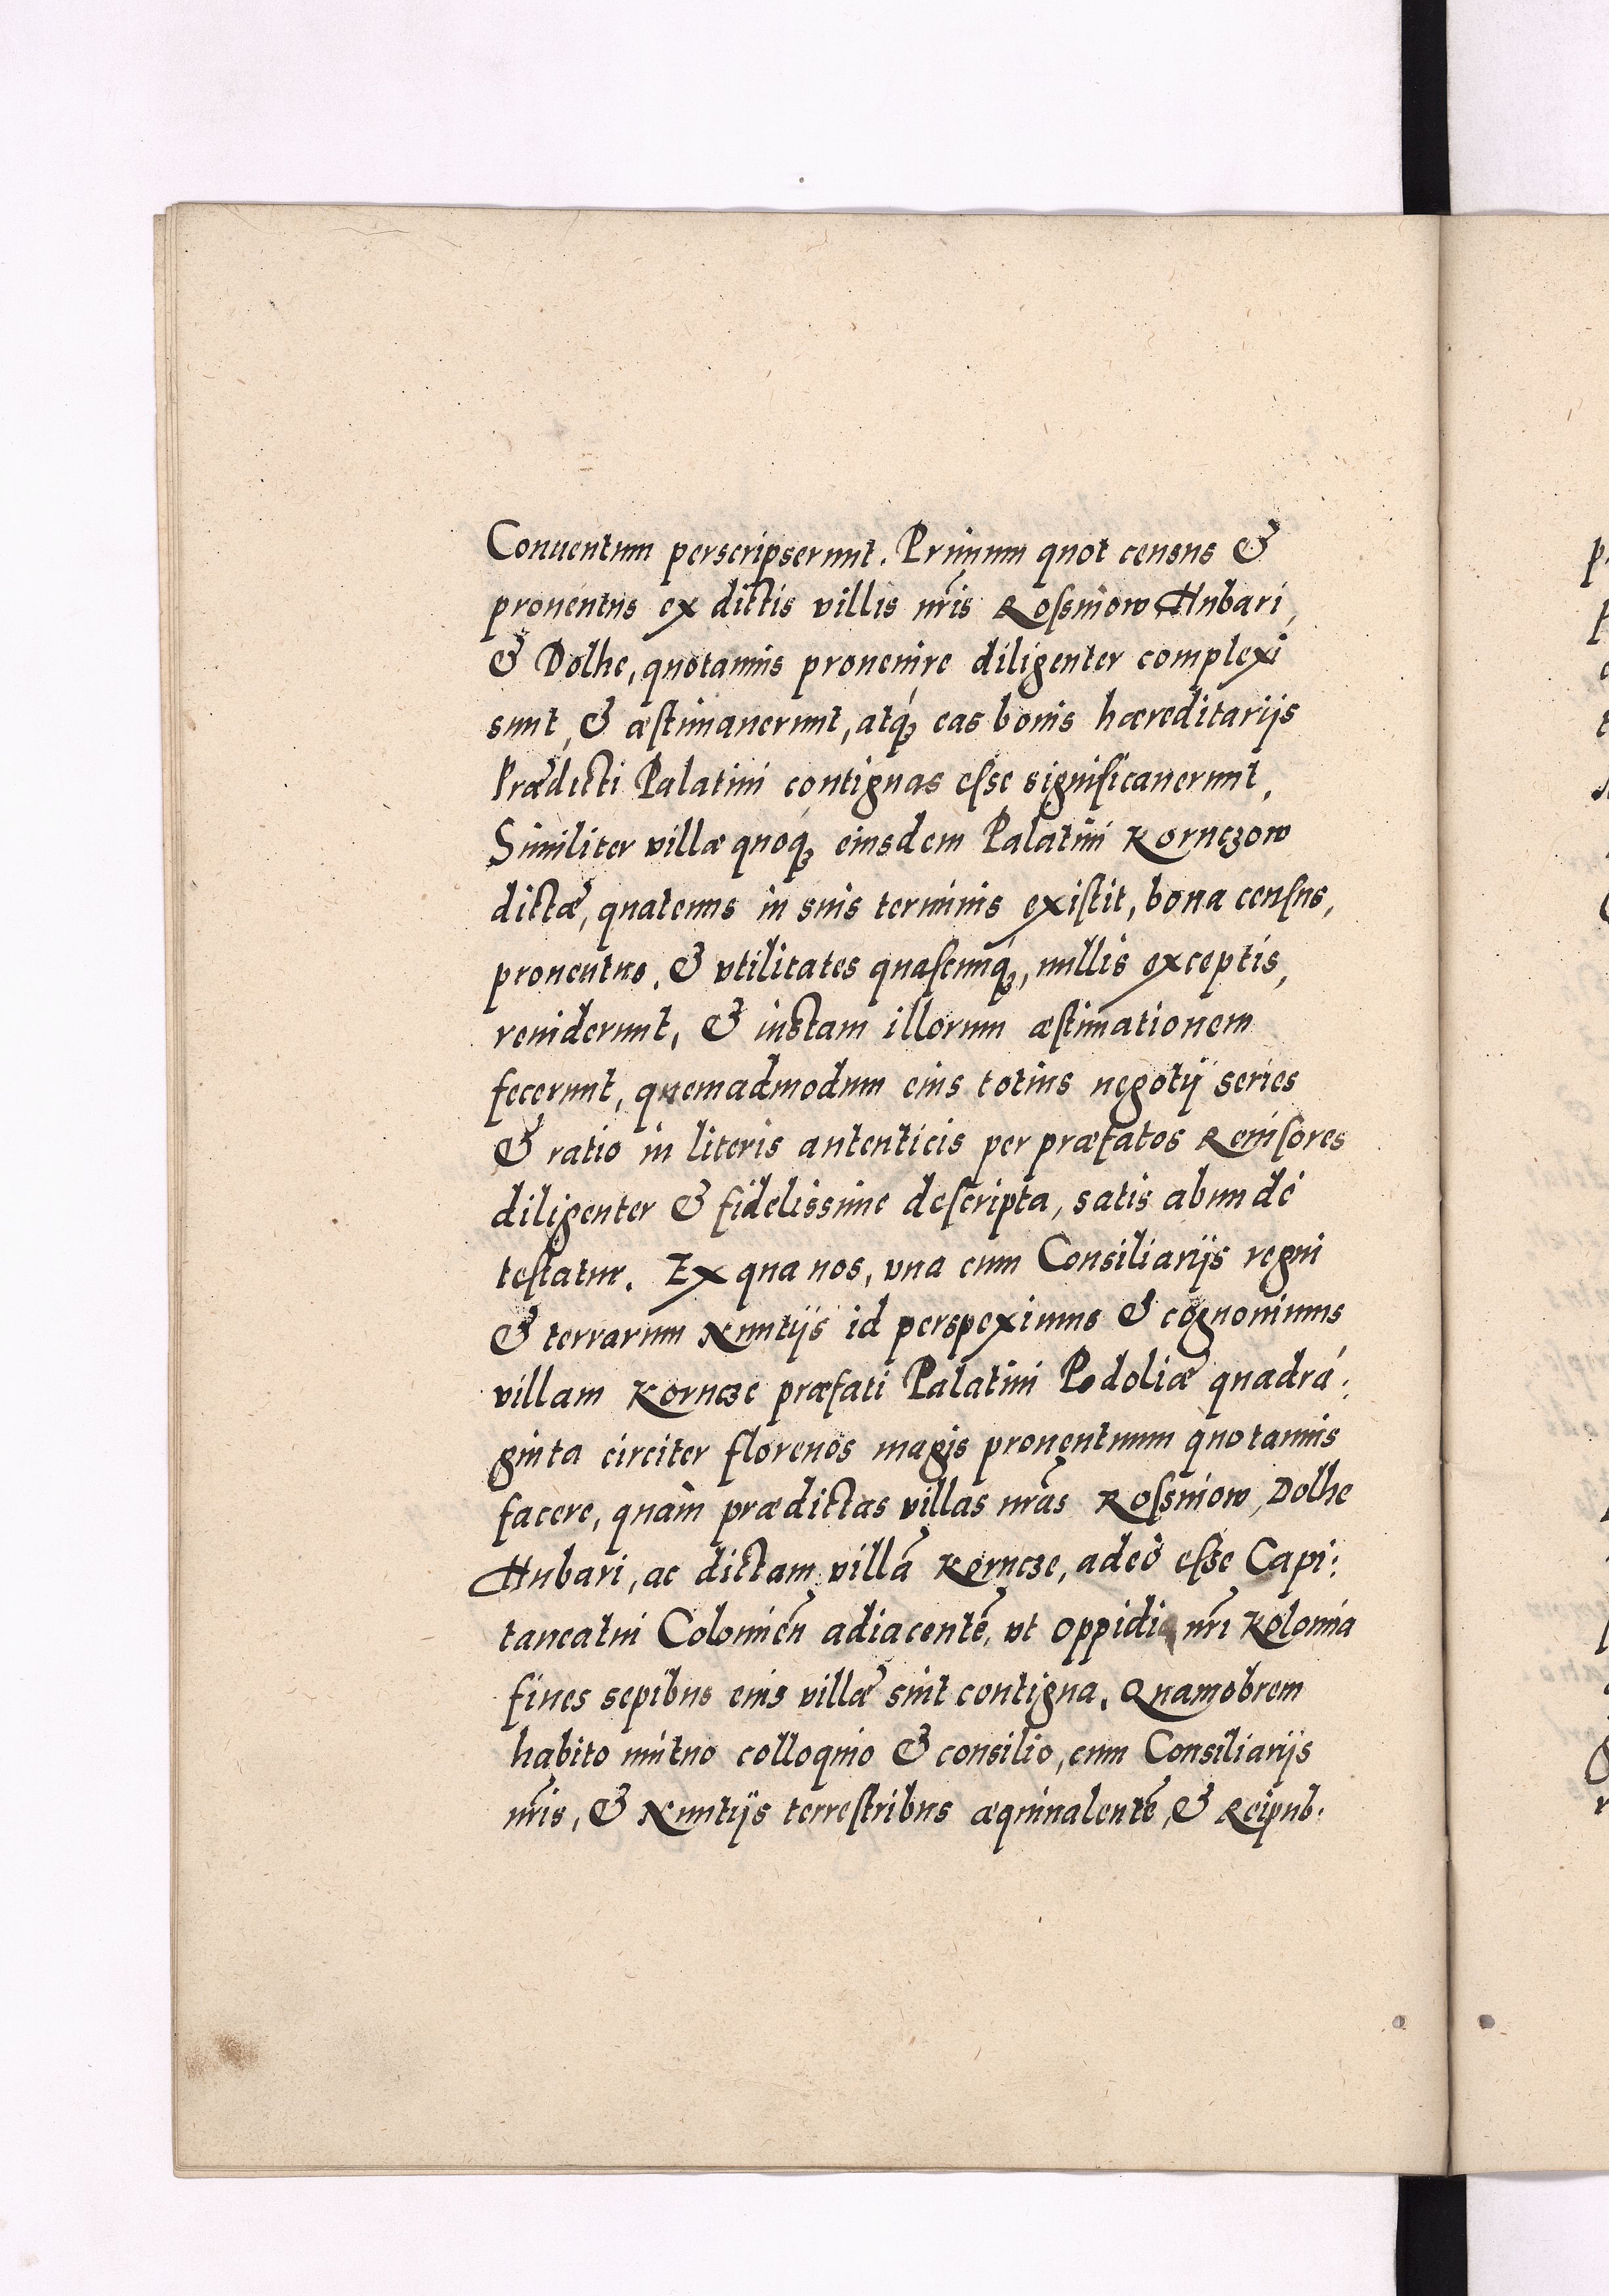 Conuentum perscripserunt. Primum quot census &
prouentus ex dictis villis nr̃is Rossniow Hubari,
& Dolhe, quotannis prouenire diligenter complexi
sunt, & æstimauerunt, atq́ꝫ eas bonis hæreditarijs
Prædicti Palatini contiguas esse significauerunt,
Similiter villæ quoq́ꝫ eiusdem Palatini Kornczow
dictæ, quatenus in suis terminis existit, bona census,
prouentus, & vtilitates quascunq́ꝫ, nullis exceptis,
reuiderunt, & iustam illorum æstimationem
fecerunt, quemadmodum eius totius negotij series
& ratio in literis autenticis per præfatos Reuisores
diligenter & fidelissime descripta, satis abundé
testatur. Ex qua nos, vna cum Consiliarijs regni
& terrarum Nuntijs id perspeximus & cognouimus
villam Korncze præfati Palatini Podoliæ quadrá:
ginta circiter florenos magis prouentuum quotannis
facere, quàm prædictas villas nr̃as Rossniow, Dolhe
Hubari, ac dictam villã Korncze, adeò esse Capi:
taneatui Colomien̄ adiacentẽ, vt oppidi nr̃i Kolomia
fines sepibus eius villæ sint contigua. Quamobrem
habito mutuo colloquio & consilio, cum Consiliarijs
nr̃is, & Nuntijs terrestribus æquiualentẽ, & Reipub.